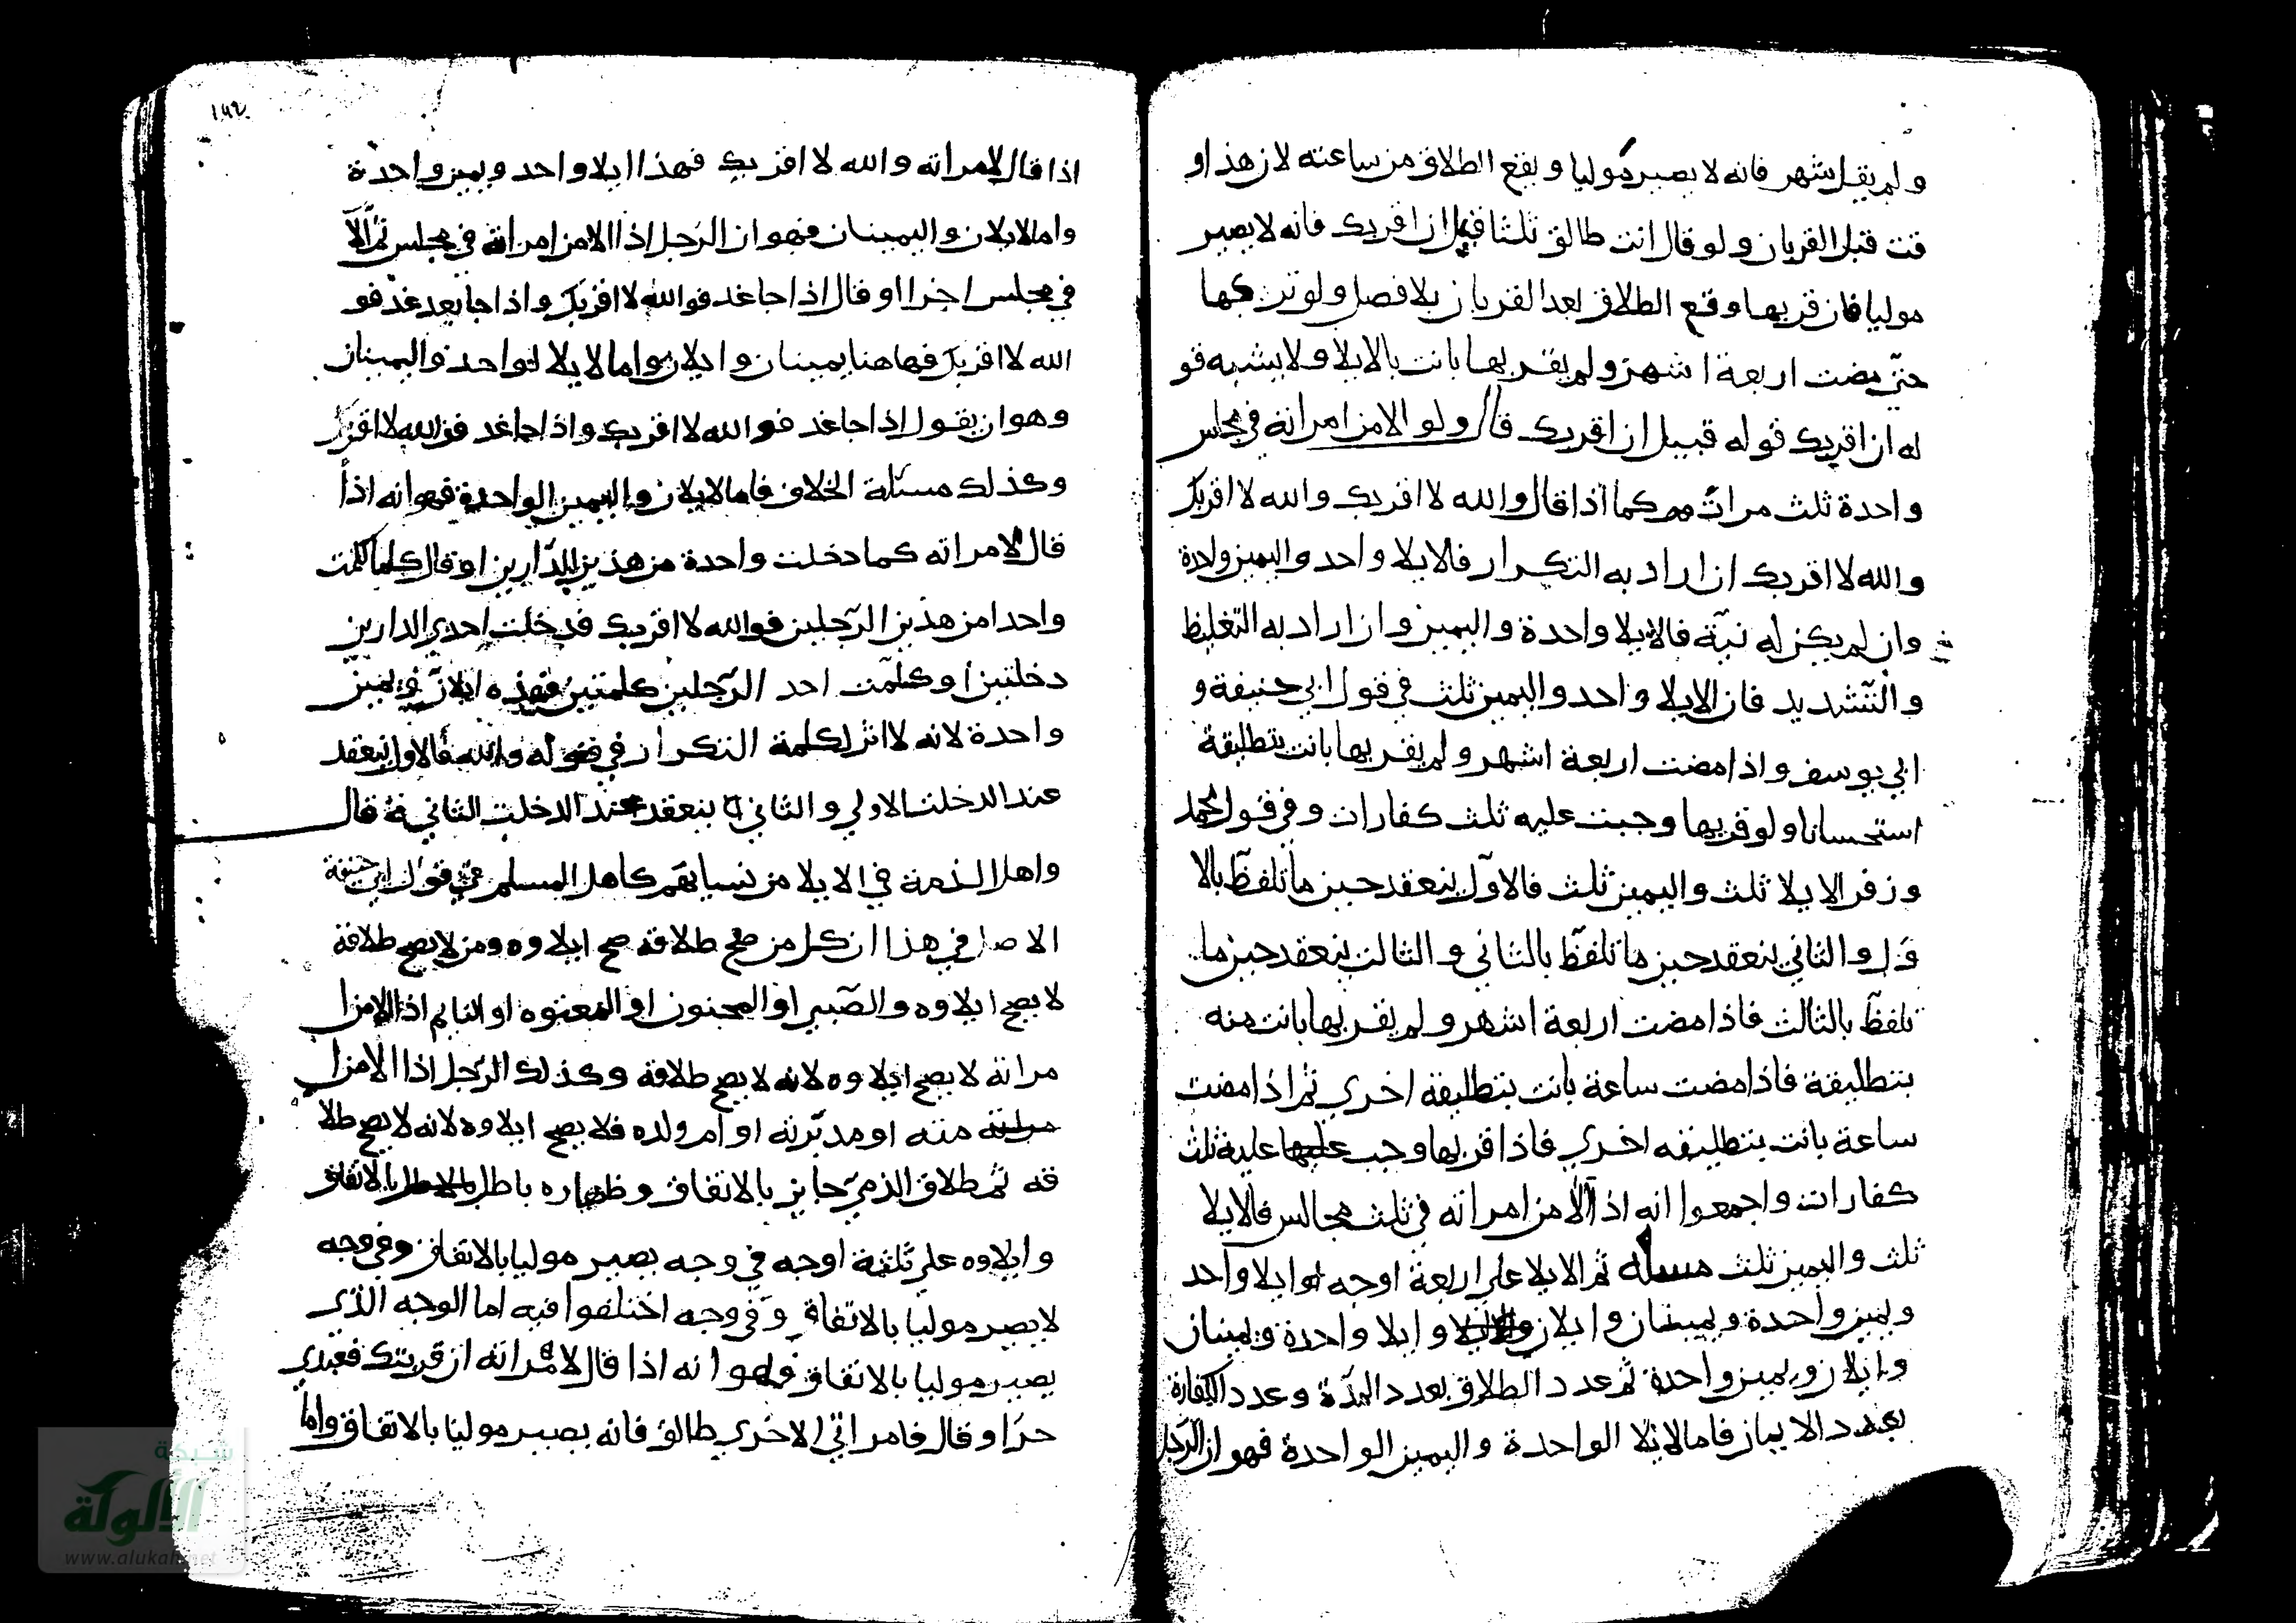 ولم يقل شهر فانه لا يصير موليا ويقع الطلاق من ساعته لان هذا و
قت قبل القربان ولو قال انت طالق ثلثا قبيل ان اقربك فانه لا يصير
موليا فان قربها وقع الطلاق بعد القربان بلا فصل ولو تركها
حتى مضت اربعة اشهر ولم يقربها بانت بالايلا ولا يشبه قو
له ان اقربك قوله قبيل ان اقربك قال ولو الا من امراته في مجلس
واحدة ثلث مرات كما اذا قال والله لا اقربك والله لا اقربك
والله لا اقربك ان اراد به التكرار فالايلا واحد واليمين واحدة
وان لم يكن له نية فالايلا واحدة واليمين وان اراد به التغليظ
والتشديد فان الايلا واحد واليمين ثلث في قول ابي حنيفة و
ابي يوسف واذا مضت اربعة اشهر ولم يقربها بانت بتطليقة
استحسانا ولو قربها وجبت عليه ثلث كفارات وفي قول محمد
وزفر الايلا ثلث واليمين ثلث فالاول ينعقد حين ما تلفظ بالا
ول والثاني ينعقد حين ما تلفظ بالثاني والثالث ينعقد حين ما
تلفظ بالثالث فاذا مضت اربعة اشهر ولم يقربها بانت منه
بتطليقة فاذا مضت ساعة بانت بتطليقة اخري ثم اذا مضت
ساعة بانت بتطليقه اخري فاذا قربها وجب عليها عليه ثلث
كفارات واجمعوا انه اذا الا من امراته في ثلث مجالس فالايلا
ثلث واليمين ثلث مسله ثم الايلا علي اربعة اوجه ايلا واحد
ويمين واحدة ويمينان وايلان وايلا واحدة ويمينان
وايلان ويمين واحدة ثم عدد الطلاق بعدد المدة وعدد الكفارة
بعدد الايمان فاما الايلا الواحدة واليمين الواحدة فهو ان الرجل
١٤٢
اذا قال لامراته والله لا اقربك فهذا ايلا واحد ويمين واحدة
واما الايلان واليمينان فهو ان الرجل اذا الا من امراته في مجلس ثم الا
في مجلس اخر او قال اذا جا غد فوالله لا اقربك واذا جا بعد غد فو
الله لا اقربك فهاهنا يمينان وايلان واما الايلا لواحد واليمينان
وهو ان يقول اذا جا غد فوالله لا اقربك واذا جا غد فوالله لا اقربك
وكذلك مسئلة الخلاف فاما الايلان واليمين الواحدة فهو انه اذا
قال لامراته كما دخلت واحدة من هذين الدارين او قال كلما كلمت
واحدا من هذين الرجلين فوالله لا اقربك فدخلت احدي الدارين
دخلتين او كلمت احد الرجلين كلمتين فهذه ايلان ويمين
واحدة لانه لا اثر لكلمة التكرار في قوله والله فالاول ينعقد
عند الدخلت الاولي والثاني ينعقد عند الدخلت الثاني قال
واهل الذمة في الايلا من نسيا نهم كاهل المسلم في قول ابي حنيفة
الاصل في هذا ان كل من صح طلاقه صح ايلاوه ومن لا يصح طلاقه
لا يصح ايلاوه والصبي او المجنون او المعتوه او النايم اذا الا من ا
مراته لا يصح ايلاوه لانه لا يصح طلاقه وكذلك الرجل اذا الا من ا
مته او مدبرته او ام ولده فلا يصح ايلاوه لانه لا يصح طلا
قه ثم طلاق الذمي جايز بالاتفاق وظهاره باطل بالاتفاق
وايلاوه علي ثلثة اوجه في وجه يصير موليا بالاتفاق وفي وجه
لا يصير موليا بالاتفاق وفي وجه اختلفوا فيه اما الوجه الذي
يصير موليا بالاتفاق فهو انه اذا قال لامراته ان قربتك فعبدي
حر او قال فامراتي الاخري طالق فانه يصير موليا بالاتفاق واما
شبكة
الألوكة
www.alukah.net